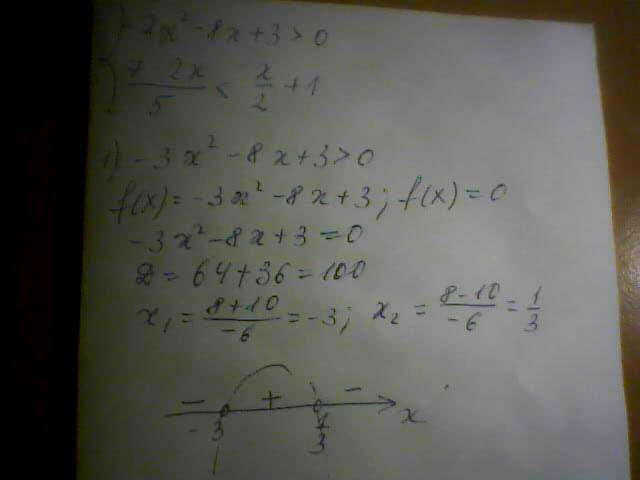 ) -2x² - 8x + 3 > 0
7 2x / 5 < x/2 + 1
1) -3x² - 8x + 3 > 0
f(x) = -3x² - 8x + 3; f(x) = 0
-3x² - 8x + 3 = 0
D = 64 + 36 = 100
x₁ = (8+10)/-6 = -3; x₂ = (8-10)/-6 = 1/3
- + -
-3 1/3 x